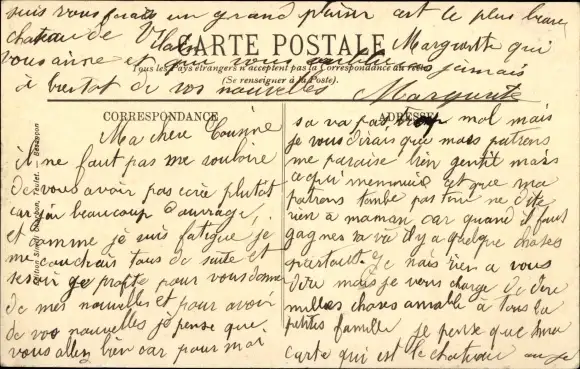 CORRESPONDANCE
Ma chère Cousine
il ne faut pas me vouloire
de vous avoir pas écrie plutot
car j'ai beaucoup d'ouvrage,
et comme je suis fatigue je
me couchais tous de suite et
se soir je profite pour vous donne
de mes nouvelles et pour avoir
de vos nouvelles je pense que
vous allez bien car pour moi
ADRESSE
sa va pas trop mal mais
je vous dirais que mes patrons
me paraise bien gentil mais
ce qui m'ennuie est que ma
patrons tombe pas ne dite
rien à maman car quand il faut
gagnes sa vie il y a quelque choses
partout je n'ais rien a vous
dire mais je vous charge de dire
milles choses amable à tous la
petites famille je pense que ma
carte qui est le chateau ou je
suis vous ferais un grand plaisir cest le plus beau
chateau de
CARTE POSTALE
Marguerite qui
vous aime et que vous oublie jamais
Tous les Pays étrangers n'acceptent pas la Correspondance au recto
(Se renseigner à la Poste).
à bientot de vos nouvelles
Marguerite
Teulet. - Besançon